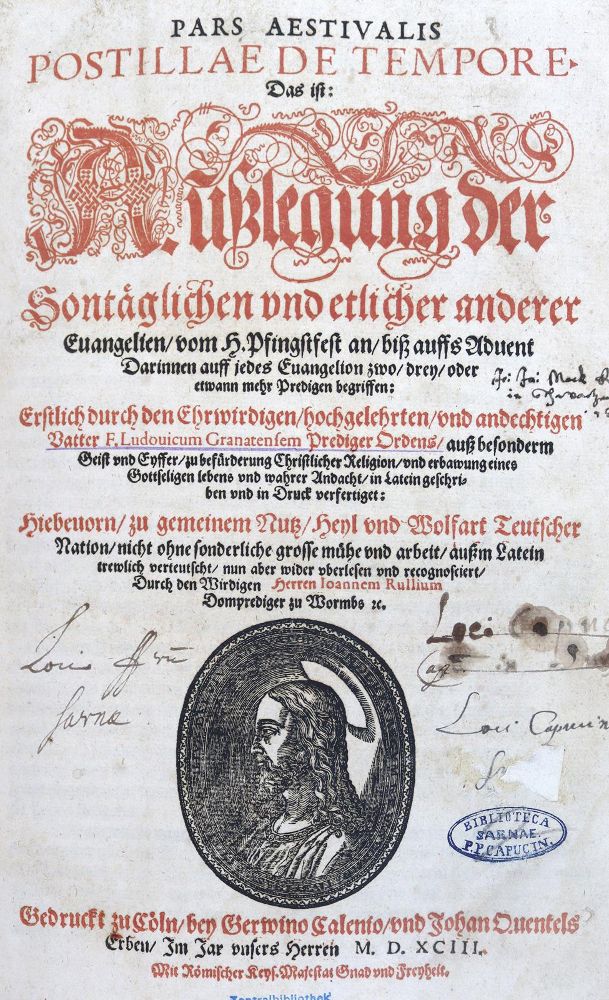 PARS AESTIVALIS
POSTILLAE DE TEMPORE.
Das ist:
Außlegung der
Sontäglichen vnd etlicher anderer
Euangelien/ vom H. Pfingstfest an/ biß auffs Aduent
Darinnen auff jedes Euangelion zwo/ drey/ oder
etwann mehr Predigen begriffen:
Erstlich durch den Ehrwirdigen/ hochgelehrten/ vnd andechtigen
Vatter F. Ludouicum Granatensem Prediger Ordens/ auß besonderm
Geist vnd Eyffer/ zu befürderung Christlicher Religion/ vnd erbawung eines
Gottseligen lebens vnd wahrer Andacht/ in Latein geschri-
ben vnd in Druck verfertiget:
Hiebeuorn/ zu gemeinem Nutz/ Heyl vnd Wolfart Teutscher
Nation/ nicht ohne sonderliche grosse mühe vnd arbeit/ außm Latein
trewlich verteutscht/ nun aber wider vberlesen vnd recognosciert/
Durch den Wirdigen Herren Ioannem Rullium
Domprediger zu Wormbs ꝛc.
Loci
Sarnæ
Loci Capucin
Loci Capucin
BIBLIOTECA
SARNAE.
P.P. CAPUCIN.
Gedruckt zu Cöln/ bey Gerwino Calenio/ vnd Johan Quentels
Erben/ Im Jar vnsers Herren M. D. XCIII.
Mit Römischer Keys. Maiestat Gnad vnd Freyheit.
Zentralbibliothek